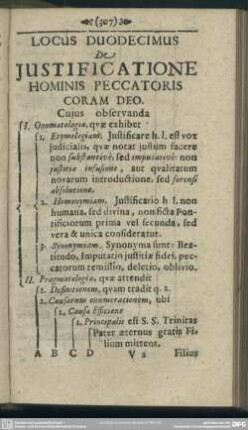 (307)
LOCUS DUODECIMUS
De
JUSTIFICATIONE
HOMINIS PECCATORIS
CORAM DEO.
Cujus observanda
I. Onomatologia, quæ exhibet
1. Etymologiam. Justificare h. l. est vox
judicialis, quæ notat justum facere
non substantivè, sed imputativè: non
justitiæ infusione, aut qvalitatum
novarum introductione, sed forensi
absolutione.
2. Homonymiam. Justificatio h l. non
humana, sed divina, non ficta Pon-
tificiorum prima vel secunda, sed
vera & unica consideratur.
3. Synonymiam. Synonyma sunt: Bea-
titudo, Imputatio justitiæ fidei, pec-
catorum remissio, deletio, oblivio.
II. Pragmatologia, quæ attendit
1. Definitionem, qvam tradit q. 2.
2. Causarum enumerationem, ubi
1. Causa Efficiens
1. Principalis est S. S. Trinitas
Pater æternus gratis Fi-
lium mittens.
A B C D V 2 Filius